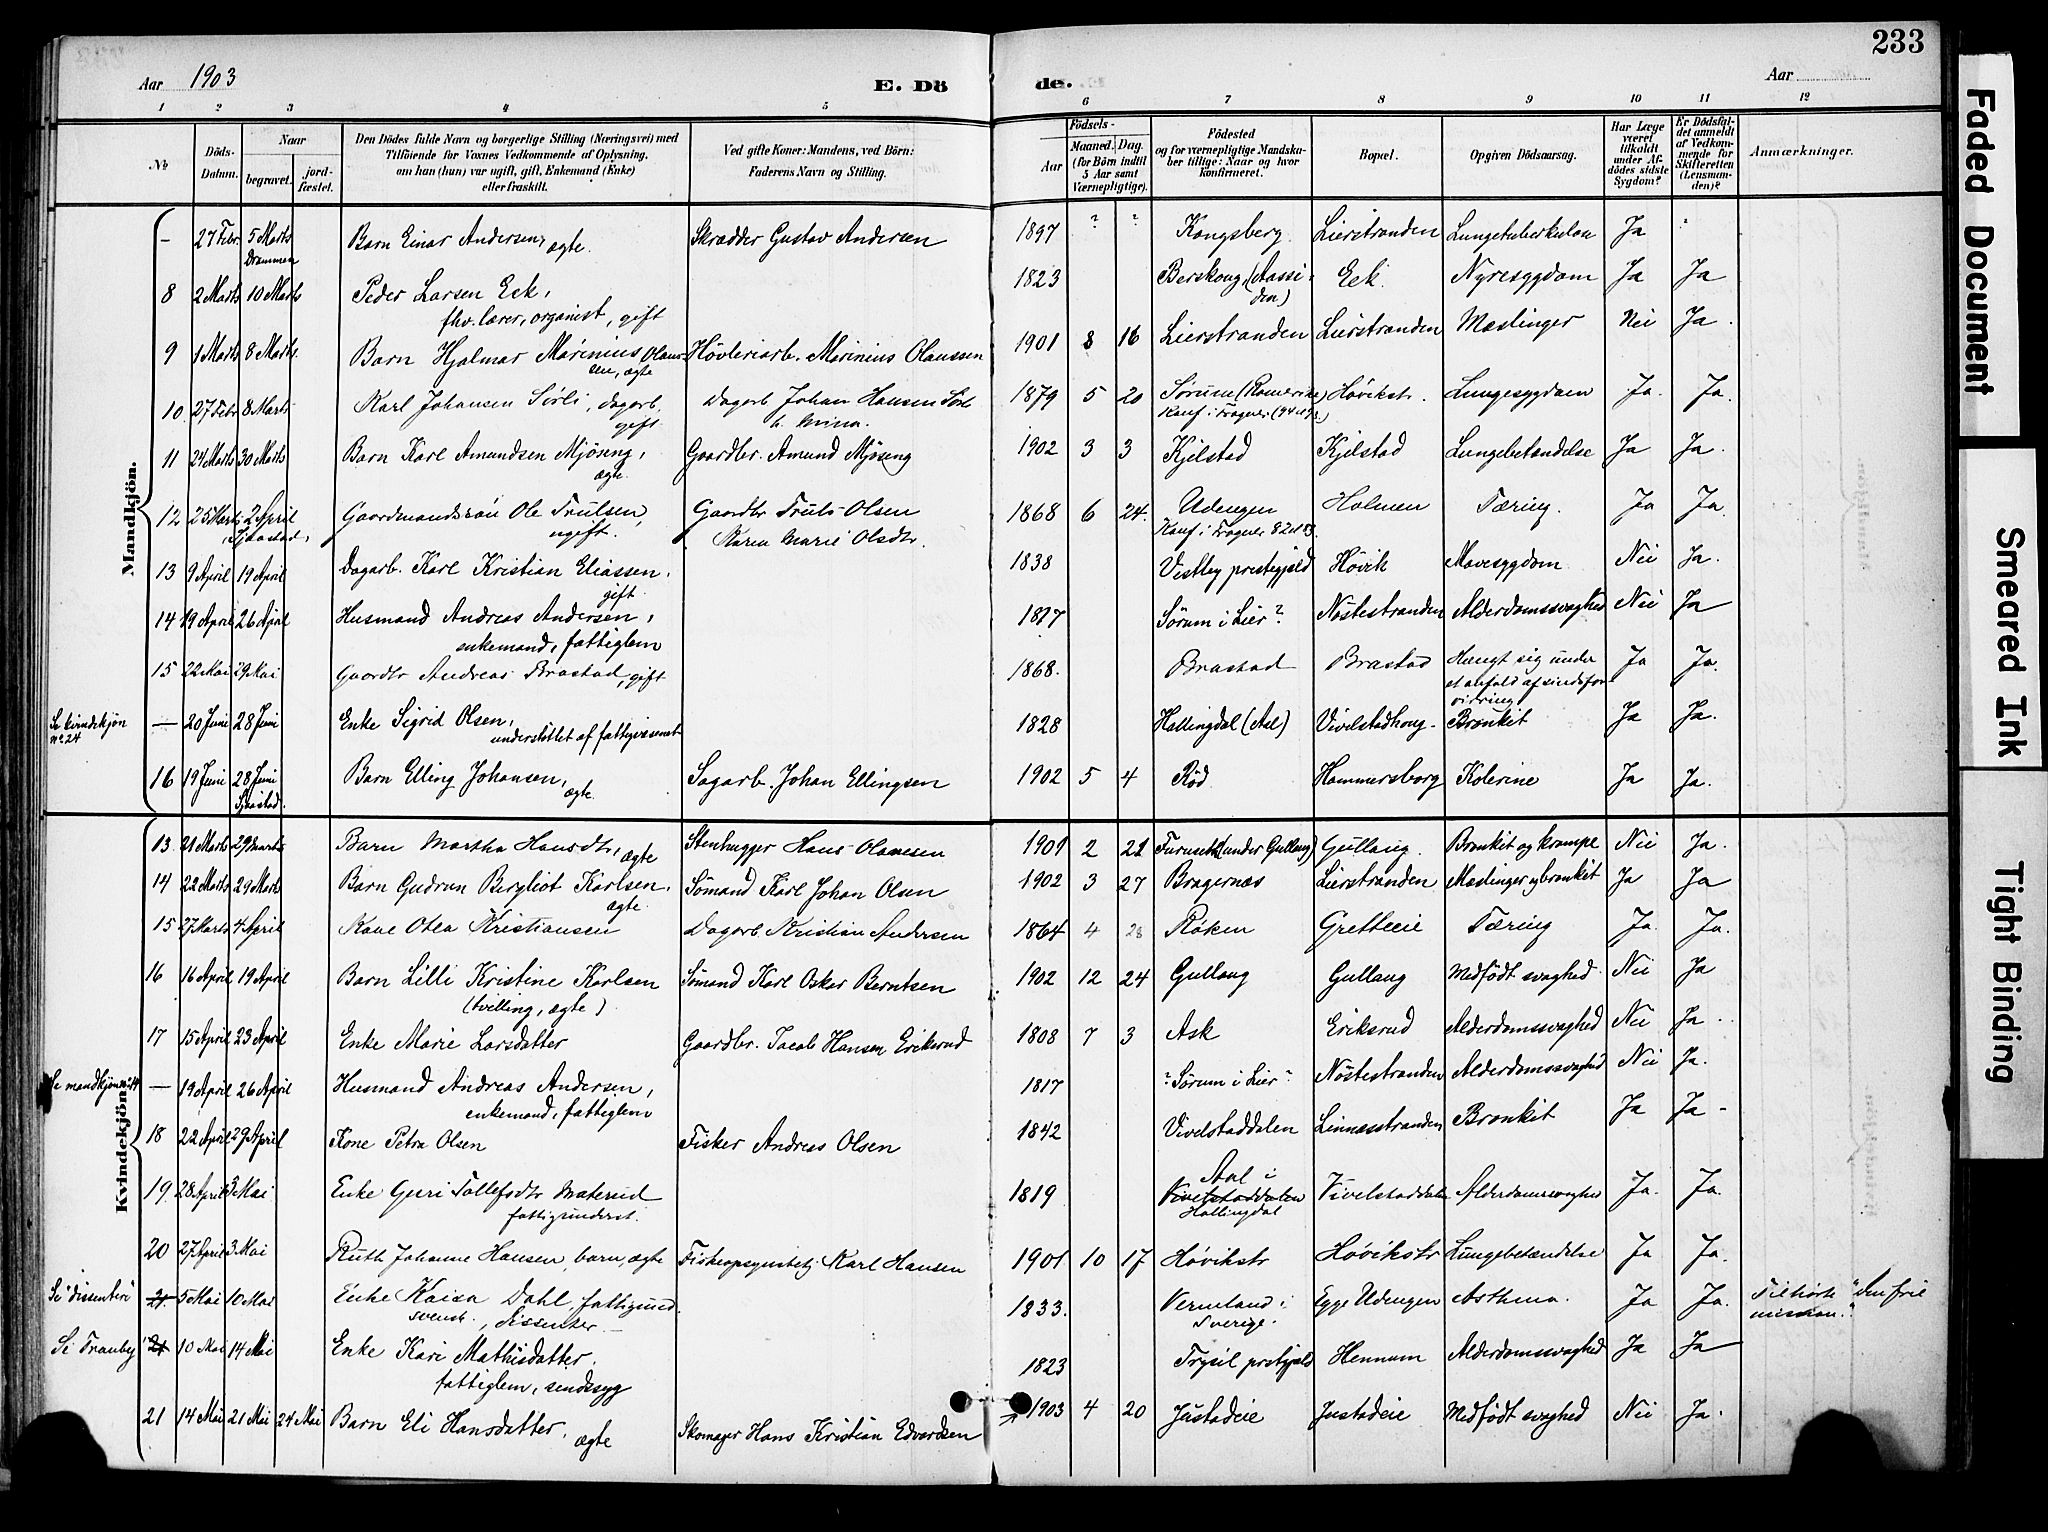 233
Aar 1903
E. Dö
de.
Aar
1 2 3 4 5 6 7 8 9 10 11 12
No
Döds-Datum.
Naar
begravet.
jordfæstet.
Den Dödes fulde Navn og borgerlige Stilling (Næringsvei) med
Tilföiende for Voxnes Vedkommende af Oplysning,
om han (hun) var ugift, gift, Enkemand (Enke)
eller fraskilt.
Ved gifte Koner: Mandens, ved Börn:
Faderens Navn og Stilling.
Födsels-
Aar
Maaned. Dag.
(for Börn indtil
5 Aar samt
Værnepligtige).
Födested
og for værnepligtige Mandskaber
tillige: Naar og hvor
konfirmeret.
Bopæl.
Opgiven Dödsaarsag.
Har Læge
været
tilkaldt
under Afdödes
sidste
Sygdom?
Er Dödsfaldet
anmeldt
af Vedkommende
for
Skifteretten
(Lensmanden)?
Anmærkninger.
Mandkjön.
- 27 Febr. 5 Marts Drammen Barn Einar Andersen, ægte. Skrædder Gustav Andersen 1897 ? ? Kongsberg Lierstranden Lungetuberkulose Ja
8 2 Marts 10 Marts Peder Larsen Eek, fhv. lærer, organist, gift 1823 Berskoug, (Aassiden) Eek Nyresygdom Ja Ja
9 1 Marts 8 Marts. Barn Hjalmar Marinius Olaussen, ægte Høvleriarb. Marinius Olaussen 1901 8 16 Lierstranden Lierstranden Mæslinger Nei Ja.
10. 27 Febr. 8 Marts Karl Johansen Sørli, dagarb. gift. Dagarb Johan Hansen 1879 5 20 Sørum (Romerike) Konf. i Frogner Høvikstr. Lungesygdom Ja. Ja.
11 24 Marts 30 Marts Barn Karl Amundsen Mjøseng, ægte. Gaardbr. Amund Mjøseng 1902 3 3 Kjelstad Kjelstad Lungebetændelse Ja Ja.
12 25 Marts 2 April Sjaastad, Gaardmandssøn Ole Trulsen, ugift. Gaardbr Truls Olsen Karen Marie Olsdtr. 1868 6 24. Udengen Konf i Frogner 82 Holmen Tæring. Ja Ja.
13 9 April 19 April Dagarb. Karl Kristian Eliassen, gift. 1838 Vestby prestegjeld Høvik Mavesygdom Nei Ja.
14 19 April 26 April Husmand Andreas Andersen, enkemand, fattiglem 1817 Sørum i Lier? Nøstestranden Alderdomssvaghed Nei Ja
15 22 Mai 29 Mai Gaardbr Andreas Brastad, gift 1868. Brastad Brastad Hængt sig under et anfald af sindsforvirring Ja Ja.
Se kvindekjøn no 24 - 20 Juni 28 Juni Enke Sigrid Olsen, understøttet af fattigvæsenet 1828 Hallingdal (Aal) Vivelstadhoug- Bronkit Ja Ja.
16 19 Juni 28 Juni Sjaastad. Barn Elling Johansen, ægte. Sagarb. Johan Ellingsen 1902 5 4 Rød Hammersborg Kolerine Ja Ja.
Kvindekjön.
13. 21 Marts 29 Marts Barn Martha Hansdtr, ægte Stenhugger Hans Olavesen 1901 2 21 Furuseth (under Gullaug) Gullaug. Bronkit og krampe Nei Ja.
14 22 Marts 29 Marts Barn Gudrun Bergliot Karlsen, ægte. Sømand Karl Johan Olsen 1902 3 27 Bragernæs Lierstranden Mæslinger og bronkit Ja Ja
15 27 Marts 4 April Kone Olea Kristiansen Dagarb. Kristian Andersen 1864 4 28 Røken Gretteeie Tæring Ja. Ja.
16 16 April 19 April Barn Lilli Kristine Karlsen (tvilling, ægte) Sømand Karl Oskar Berntsen 1902 12 24 Gullaug Gullaug Medfødt svaghed. Nei Ja
17 15 April 23 April Enke Marie Larsdatter Gaardbr. Jacob Hansen Eriksrud 1808 7 3 Ask Eriksrud Alderdomssvaghed Nei Ja.
Se mandkjøn no 14 - 19 April 26 April Husmand Andreas Andersen, enkemand, fattiglem 1817 ? Sørum i Lier? Nøstestranden Alderdomssvaghed Nei Ja.
18 22 April 29 April Kone Petra Olsen Fisker Andreas Olsen 1842 Vivelstaddalen Linnesstranden Bronkit Ja Ja
19. 28 April 3 Mai Enke Guri Tollefsdtr Materud fattigunderst. 1819 Aal i Vivelstaddalen Hallingdal Vivelstaddalen Alderdomssvaghed Ja. Ja.
20 27 April 3 Mai Ruth Johanne Hansen, barn, ægte Karl Hansen 1901 10 17 Høvikstr Høvikstr Lungebetændelse Ja Ja.
Se "dissentere" 21. 5 Mai 10 Mai Enke Kaisa Dahl, fattigund. svensk., dissenter 1833. Vermeland i Sverige. Egge Udengen Asthma. Ja Ja. Tilhørte "den frie mission."
Se Tranby 21 10 Mai 14 Mai Enke Kari Mathisdatter. fattiglem, sindssyg 1823 Trysil prestgjeld Hennum Alderdomssvaghed Ja Ja
21 14 Mai 21 Mai 24 Mai Barn Eli Hansdatter, ægte Skomager Hans Kristian Edvardsen 1903 4 20 Justadeie Justadeie Medfødt svaghed Nei Ja.
Faded Document
Smeared Ink
Tight Binding